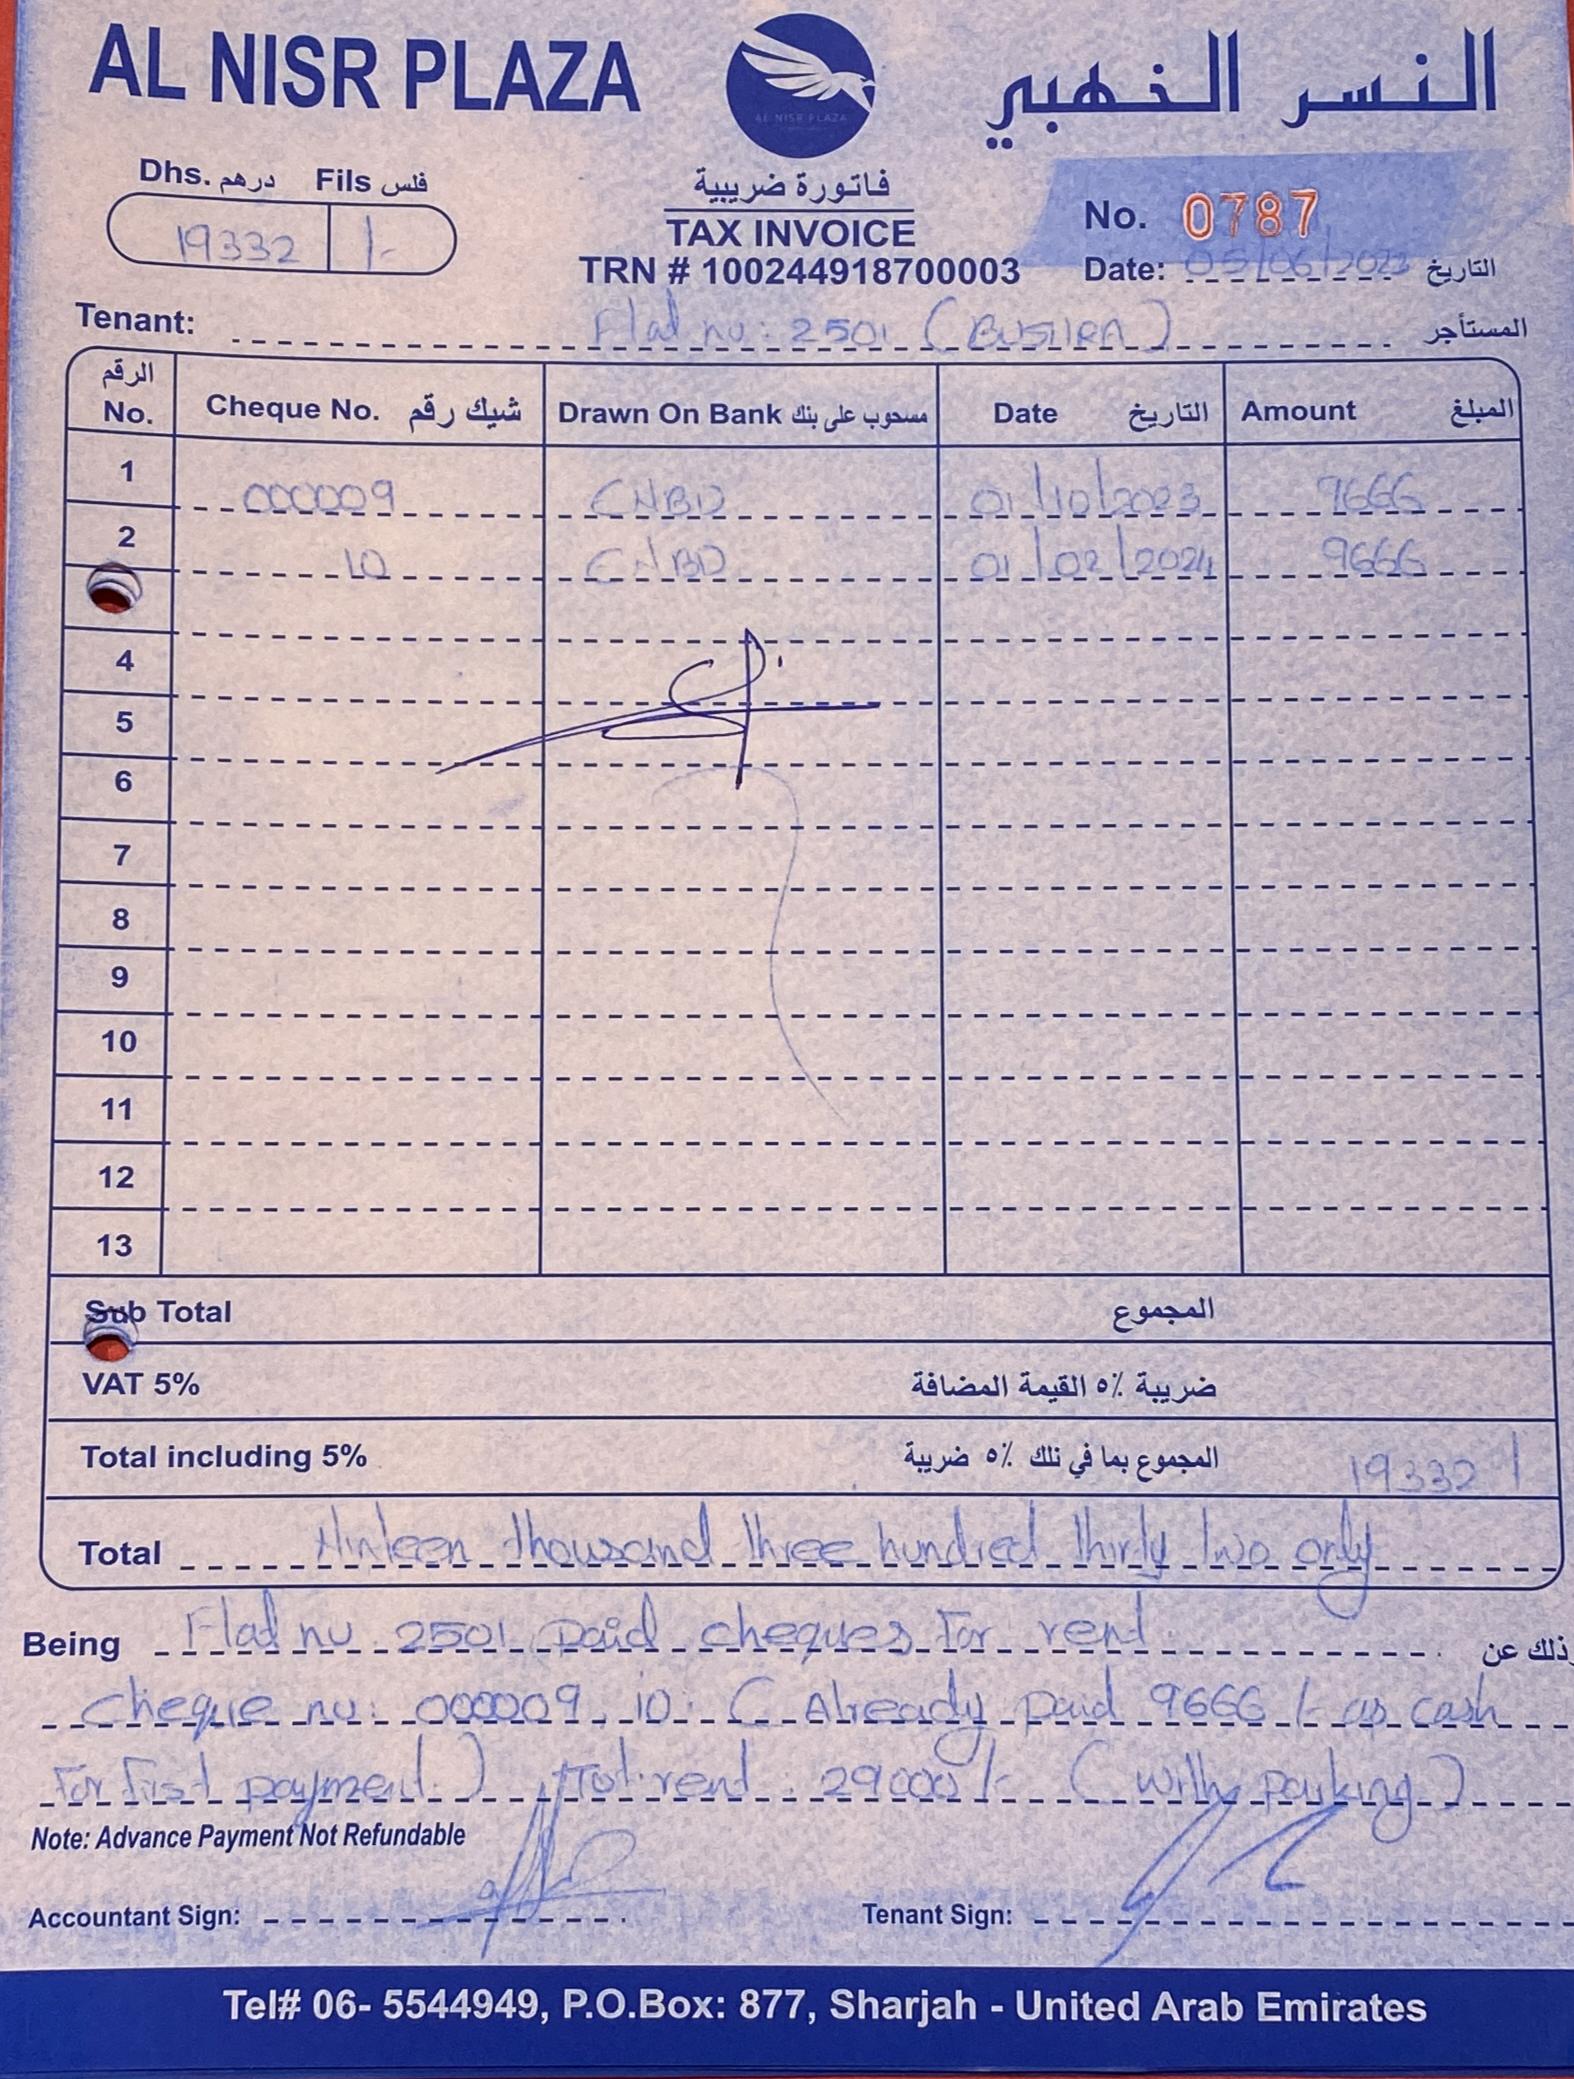 AL NISR PLAZA
النسر الذهبي
AL NISR PLAZA
Dhs. درهم Fils فلس
19332 /-
فاتورة ضريبية
TAX INVOICE
TRN # 100244918700003
No. 0787
Date: 05/06/2023 التاريخ
Tenant: Flat no: 2501 (BUSHRA) المستأجر
الرقم No. Cheque No. شيك رقم Drawn On Bank مسحوب على بنك Date التاريخ Amount المبلغ
1 000009 ENBD 01/10/2023 9666
2 10 ENBD 01/02/2024 9666
4
5
6
7
8
9
10
11
12
13
Sub Total المجموع
VAT 5% ضريبة ٥٪ القيمة المضافة
Total including 5% المجموع بما في ذلك ٥٪ ضريبة 19332 /
Total Ninteen thousand three hundred thirty two only
Being Flat no 2501 paid cheques for rent وذلك عن
cheque no: 000009, 10. (Already paid 9666 /- as cash
for first payment.) Tot. rent: 29000/- (with parking)
Note: Advance Payment Not Refundable
Accountant Sign: Tenant Sign:
Tel# 06- 5544949, P.O.Box: 877, Sharjah - United Arab Emirates